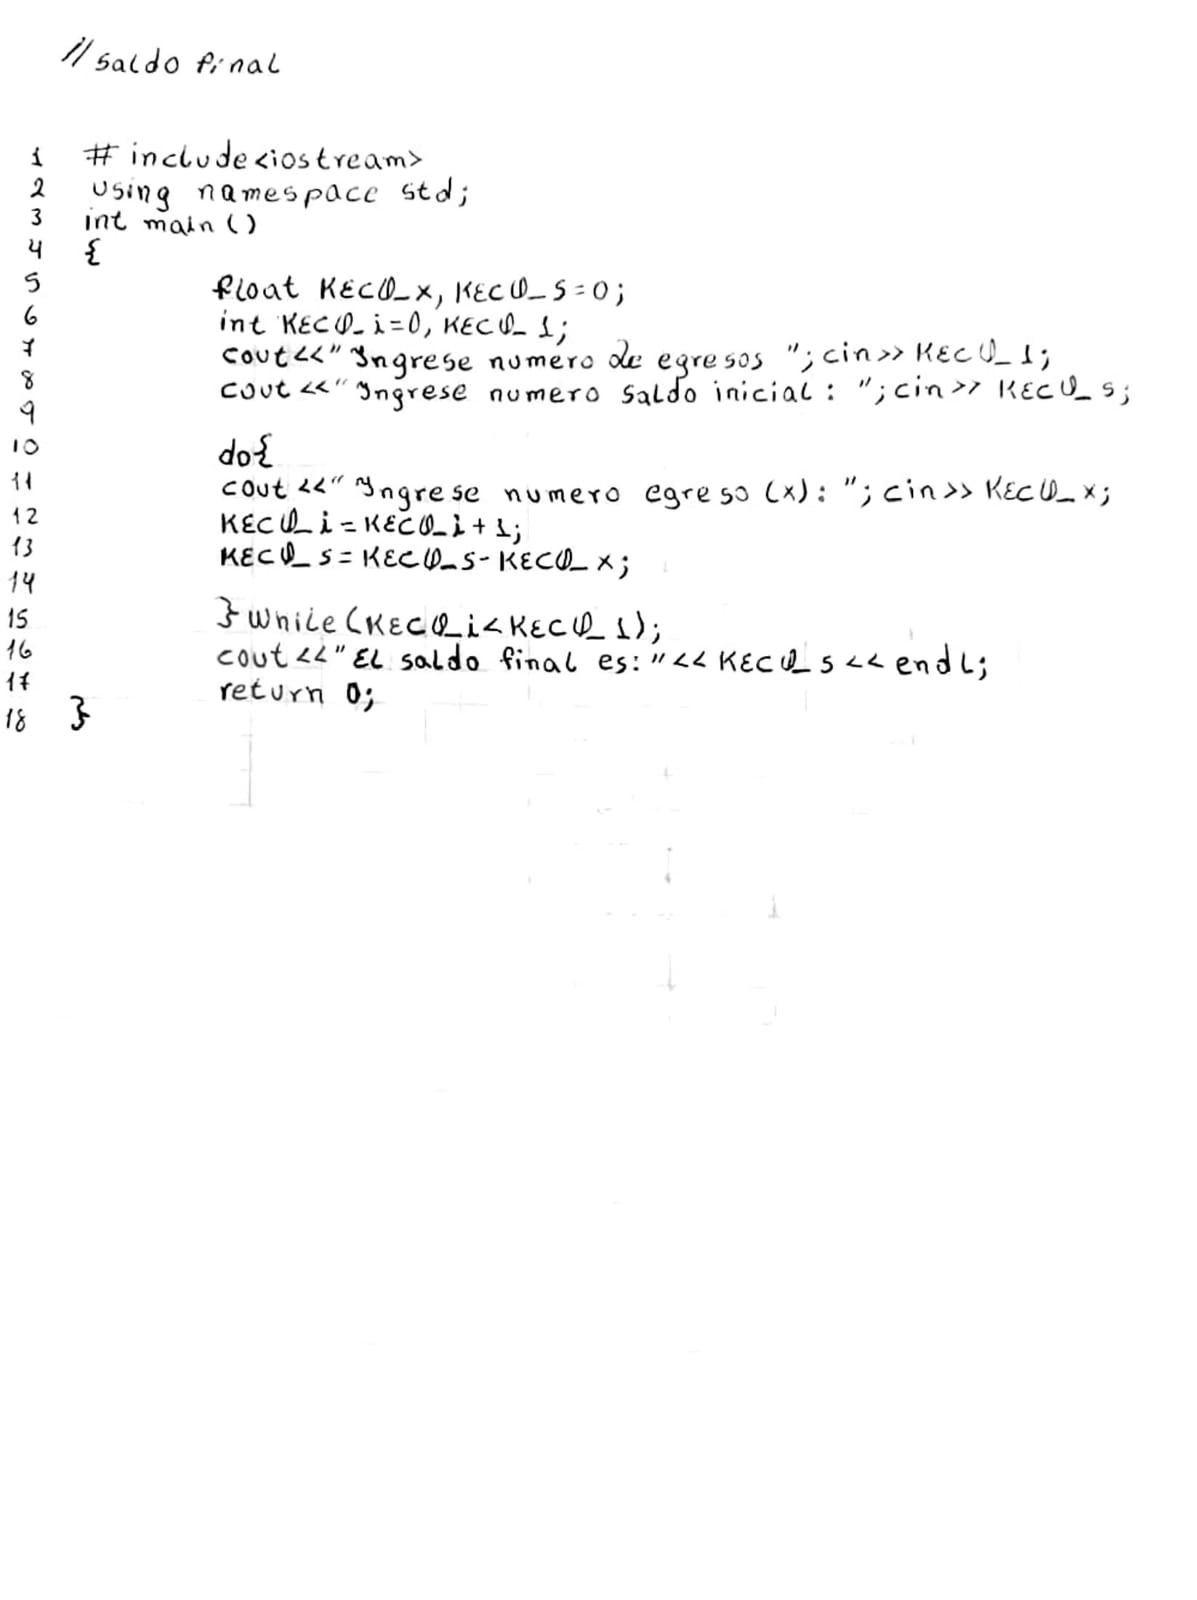 // saldo final
1 # include<iostream>
2 using namespace std;
3 int main ()
4 {
5 float KECØ_x, KECØ_s=0;
6 int KECØ_i=0, KECØ_1;
7 cout<<"Ingrese numero de egresos "; cin>> KECØ_1;
8 cout<<"Ingrese numero saldo inicial: "; cin>> KECØ_s;
9
10 do{
11 cout<<"Ingrese numero egreso (x): "; cin>> KECØ_x;
12 KECØ_i=KECØ_i+1;
13 KECØ_s=KECØ_s-KECØ_x;
14
15 } while(KECØ_i<KECØ_1);
16 cout<<"El saldo final es: "<< KECØ_s << endl;
17 return 0;
18 }